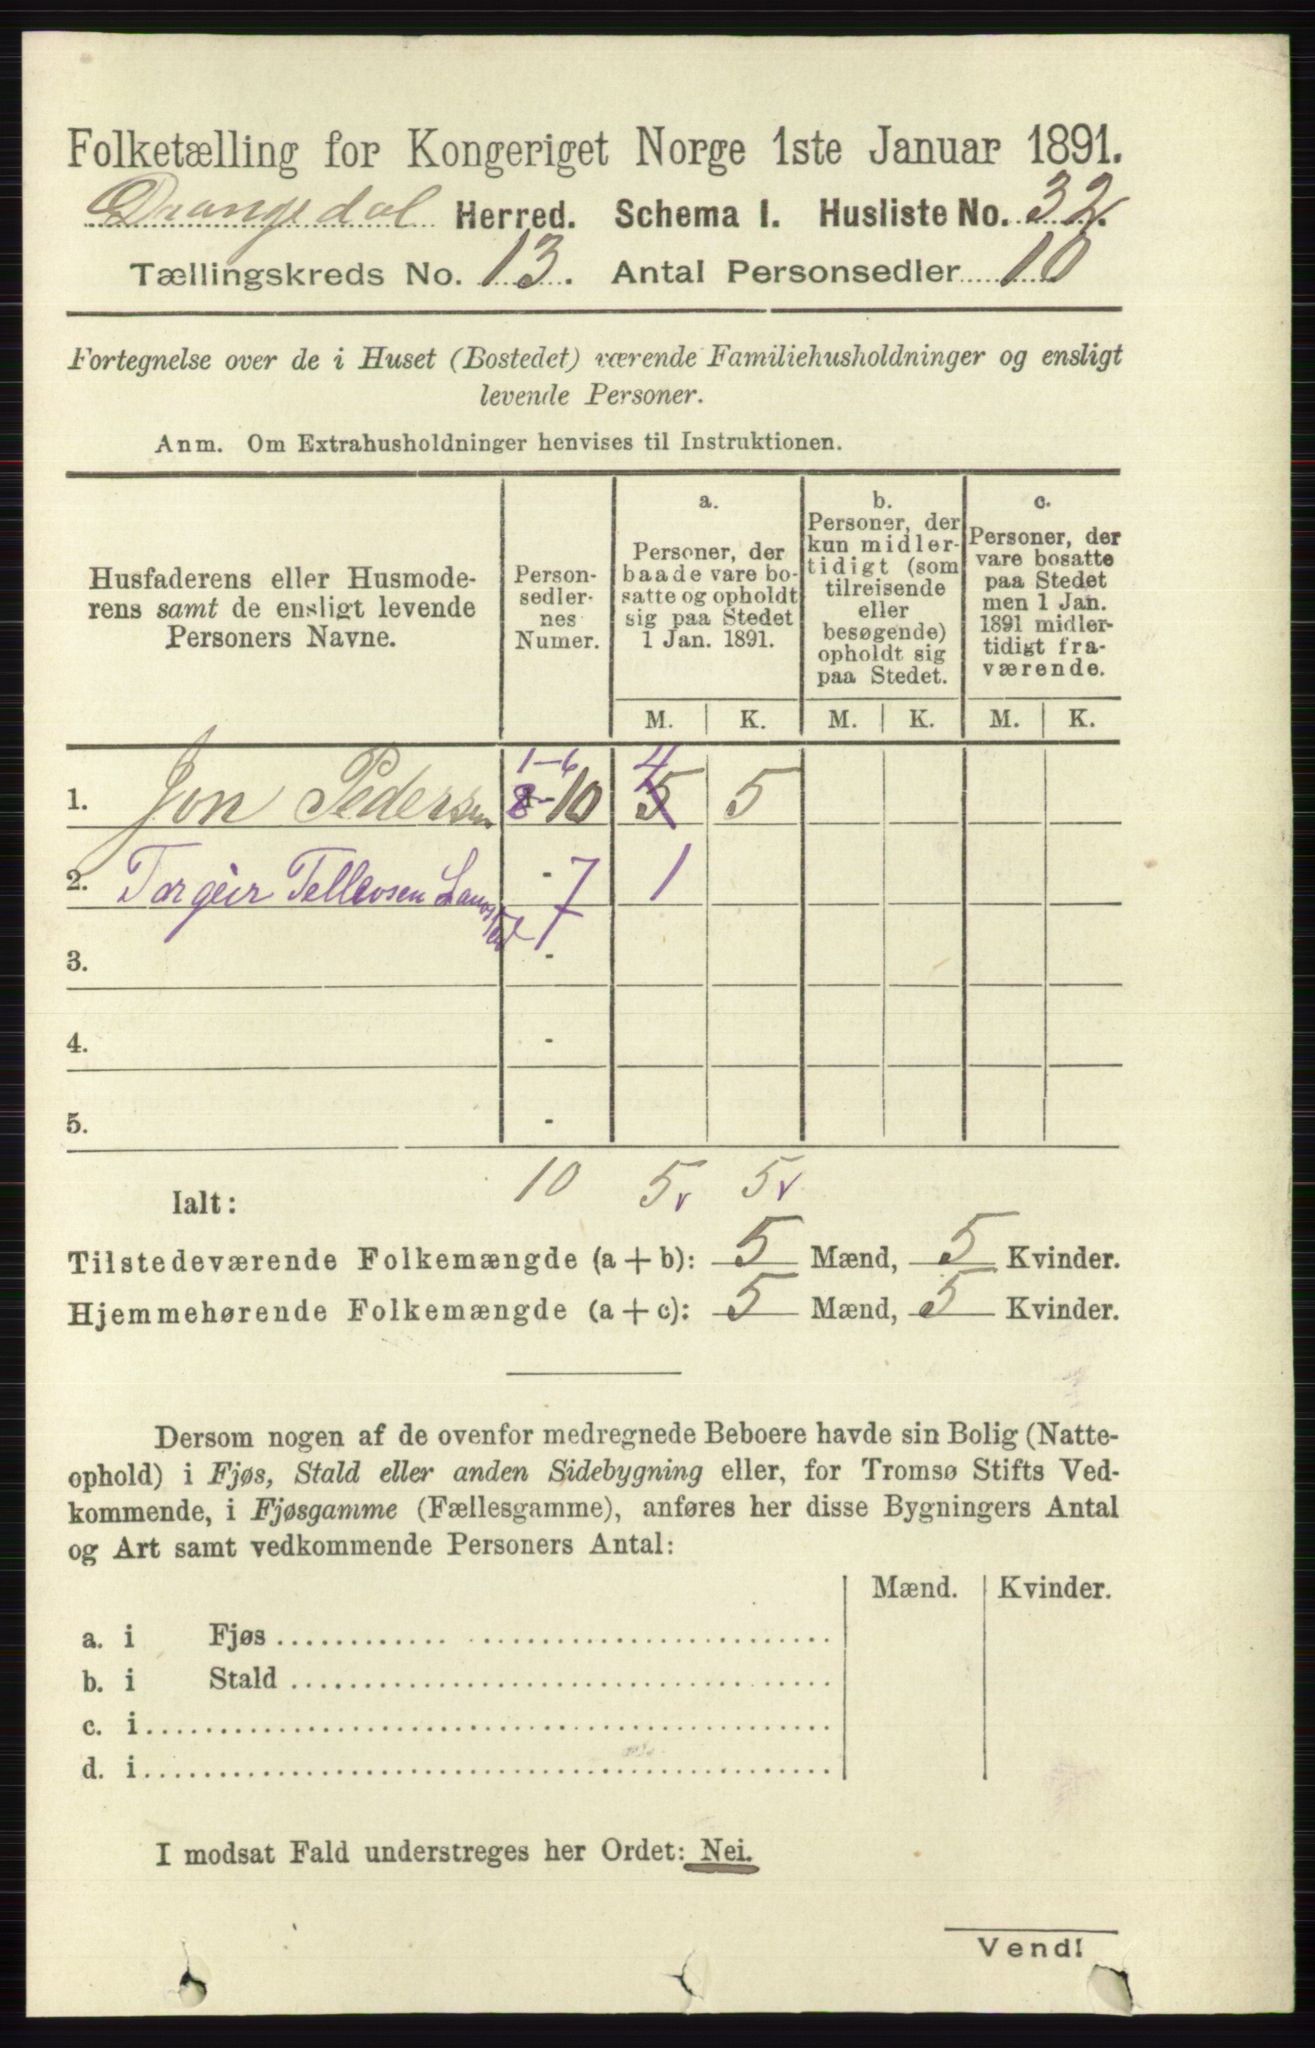 Folketælling for Kongeriget Norge 1ste Januar 1891.
Drangedal Herred. Schema I. Husliste No. 32.
Tællingskreds No. 13. Antal Personsedler 10
Fortegnelse over de i Huset (Bostedet) værende Familiehusholdninger og ensligt
levende Personer.
Anm. Om Extrahusholdninger henvises til Instruktionen.
Husfaderens eller Husmode-
rens samt de ensligt levende
Personers Navne.
Person-
sedler-
nes
Numer.
a.
Personer, der
baade vare bo-
satte og opholdt
sig paa Stedet
1 Jan. 1891.
b.
Personer, der
kun midler-
tidigt (som
tilreisende
eller
besøgende)
opholdt sig
paa Stedet.
c.
Personer, der
vare bosatte
paa Stedet
men 1 Jan.
1891 midler-
tidigt fra-
værende.
M. K. M. K. M. K.
1-6 4
1. Jon Pedersen 8-10 5 5
2. Torgeir Tellevsen - 7 1
3. -
4. -
5. -
Ialt: 10 5v 5v
Tilstedeværende Folkemængde (a + b): 5 Mænd, 5 Kvinder.
Hjemmehørende Folkemængde (a + c): 5 Mænd, 5 Kvinder.
Dersom nogen af de ovenfor medregnede Beboere havde sin Bolig (Natte-
ophold) i Fjøs, Stald eller anden Sidebygning eller, for Tromsø Stifts Ved-
kommende, i Fjøsgamme (Fællesgamme), anføres her disse Bygningers Antal
og Art samt vedkommende Personers Antal:
Mænd. Kvinder.
a. i Fjøs
b. i Stald
c. i
d. i
I modsat Fald understreges her Ordet: Nei.
Vend!